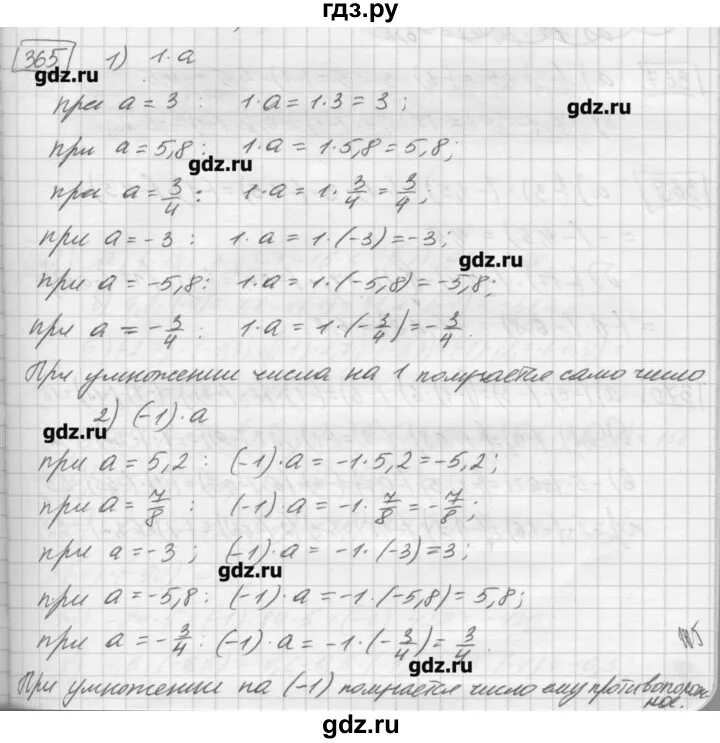 гдз.ру
365 1) 1·a
gdz.ru
при a = 3 : 1·a = 1·3 = 3 ;
gdz.ru
при a = 5,8 : 1·a = 1·5,8 = 5,8;
gdz.ru
при a = 3/4 : 1·a = 1·3/4 = 3/4;
при a = -3 : 1·a = 1·(-3) = -3;
gdz.ru
при a = -5,8: 1·a = 1·(-5,8) = -5,8;
при a = -3/4 : 1·a = 1·(-3/4) = -3/4.
При умножении числа на 1 получается само число
2) (-1)·a
gdz.ru
при a = 5,2 : (-1)·a = -1·5,2 = -5,2;
при a = 7/8 : (-1)·a = -1·7/8 = -7/8;
при a = -3 ; (-1)·a = -1·(-3) = 3;
gdz.ru
при a = -5,8 : (-1)·a = -1·(-5,8) = 5,8;
при a = -3/4 : (-1)·a = -1·(-3/4) = 3/4.
gdz.ru
При умножении на (-1) получается число ему противополож-
ное.
gdz.ru